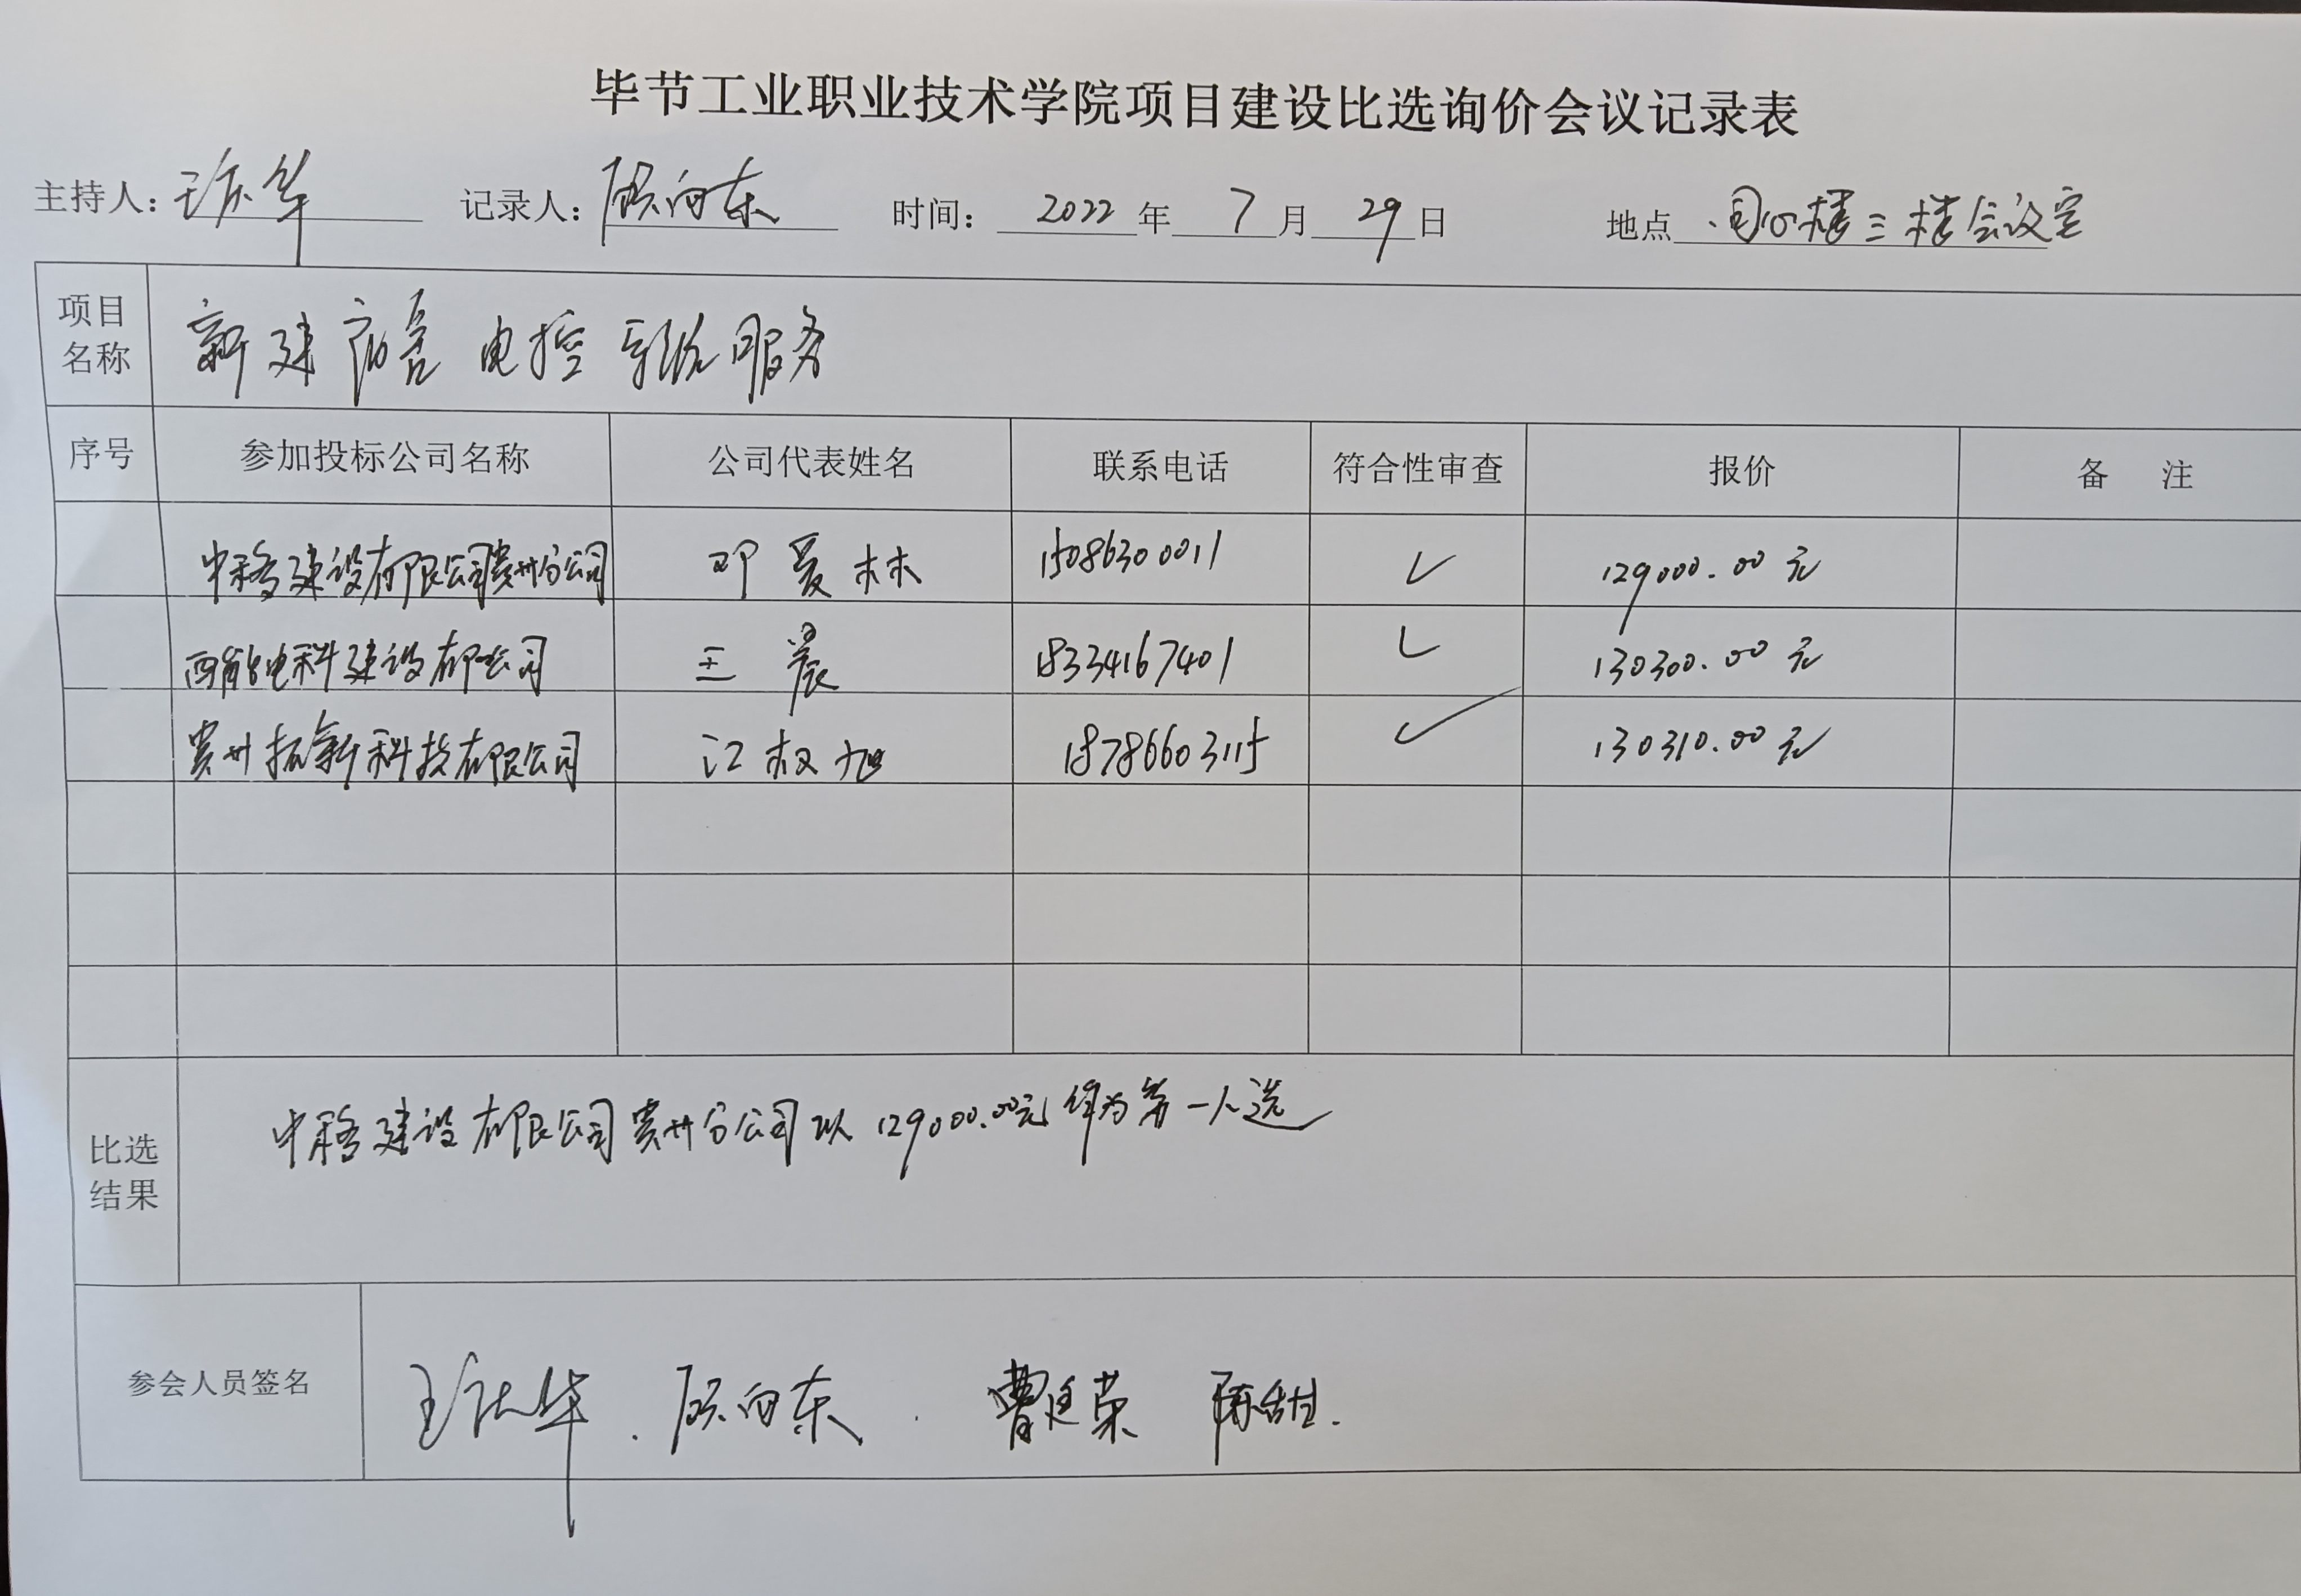 毕节工业职业技术学院项目建设比选询价会议记录表
主持人: 王庆华 记录人: 顾向东 时间: 2022 年 7 月 29 日 地点 同心楼三楼会议室
项目名称 新建宿舍电控系统服务
序号 参加投标公司名称 公司代表姓名 联系电话 符合性审查 报价 备 注
中移建设有限公司贵州分公司 邓爱林 15086300011 ✓ 129000.00元
西能电科建设有限公司 王晨 18334167401 ✓ 130300.00元
贵州拓新科技有限公司 江权旭 18786603115 ✓ 130310.00元
比选结果 中移建设有限公司贵州分公司以129000.00元作为第一人选
参会人员签名 王庆华 . 顾向东 . 曹廷荣 陈甜.